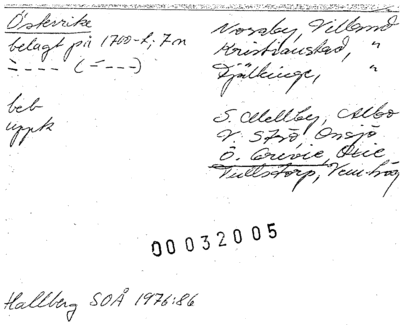 Öskvika Norsby, Villand
belagt på 1700-t; 7 m Kristianstad, "
= - - - - (= - - -) Fjälkinge, "
beb S. Mellby, Albo
uppk V. Strö, Onsjö
Ö. Grevie, Oxie
Tullstorp, Vemmenhög
00032005
Hallberg SOÅ 1976:86